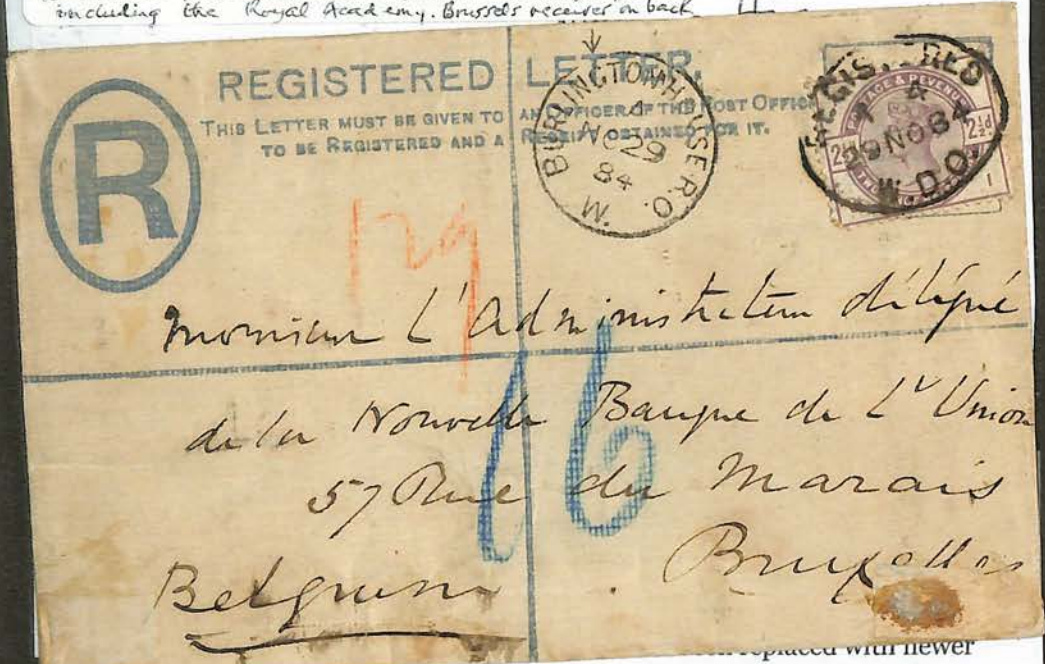 including the Royal Academy. Brussels receiver on back
REGISTERED LETTER.
THIS LETTER MUST BE GIVEN TO AN OFFICER OF THE POST OFFICE
TO BE REGISTERED AND A RECEIPT OBTAINED FOR IT.
R
BURLINGTON HOUSE R.O.
A
NO 29
84
W.
REGISTERED
29 NO 84
W.D.O.
POSTAGE & REVENUE
2½d
Monsieur L'Administrateur délégué
de la Nouvelle Banque de L'Union
57 Rue du Marais
Bruxelles
Belgium
16
replaced with newer